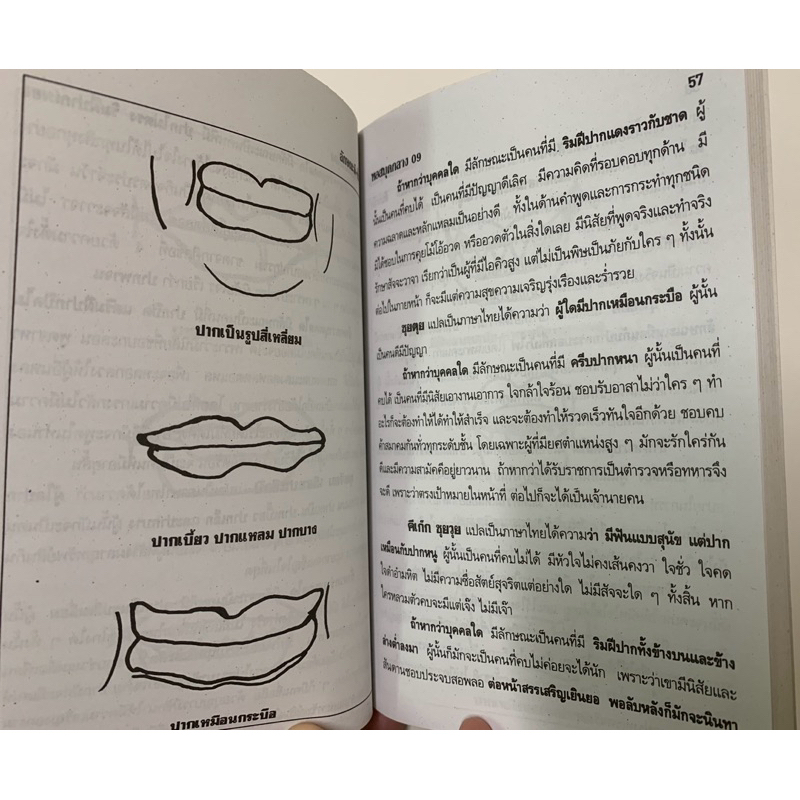 ปากเป็นรูปสี่เหลี่ยม
ปากเบี้ยว ปากแหลม ปากบาง
ปากเหมือนกระบือ
57
หอสมุดกลาง 09
ถ้าหากว่าบุคคลใด มีลักษณะเป็นคนที่มี ริมฝีปากแดงราวกับชาด ผู้
นั้นเป็นคนที่คบได้ เป็นคนที่มีปัญญาดีเลิศ มีความคิดที่รอบคอบทุกด้าน มี
ความฉลาดและหลักแหลมเป็นอย่างดี ทั้งในด้านคำพูดและการกระทำทุกชนิด
มิได้ชอบในการคุยโม้โอ้อวด หรืออวดตัวในสิ่งใดเลย มีนิสัยที่พูดจริงและทำจริง
รักษาสัจจะวาจา เรียกว่าเป็นผู้ที่มีไอคิวสูง แต่ไม่เป็นพิษเป็นภัยกับใคร ๆ ทั้งนั้น
ต่อไปในภายหน้า ก็จะมีแต่ความสุขความเจริญรุ่งเรืองและร่ำรวย
ซุยตุย แปลเป็นภาษาไทยได้ความว่า ผู้ใดมีปากเหมือนกระบือ ผู้นั้น
เป็นคนดีมีปัญญา
ถ้าหากว่าบุคคลใด มีลักษณะเป็นคนที่มี ครีบปากหนา ผู้นั้นเป็นคนที่
คบได้ เป็นคนที่มีนิสัยเอางานเอาการ ใจกล้าใจร้อน ชอบรับอาสาไม่ว่าใคร ๆ ทำ
อะไรก็จะต้องทำให้ได้ทำให้สำเร็จ และจะต้องทำให้รวดเร็วทันใจอีกด้วย ชอบคบ
ค้าสมาคมกันทั่วทุกระดับชั้น โดยเฉพาะผู้ที่มียศตำแหน่งสูง ๆ มักจะรักใคร่กัน
ดีและมีความสามัคคีอยู่ยาวนาน ถ้าหากว่าได้รับราชการเป็นตำรวจหรือทหารจึง
จะดี เพราะว่าตรงเป้าหมายในหน้าที่ ต่อไปก็จะได้เป็นเจ้านายคน
คีเก้ก ซุยวุย แปลเป็นภาษาไทยได้ความว่า มีฟันแบบสุนัข แต่ปาก
เหมือนกับปากหนู ผู้นั้นเป็นคนที่คบไม่ได้ มีหัวใจไม่คงเส้นคงวา ใจชั่ว ใจคด
ใจดำอำมหิต ไม่มีความซื่อสัตย์สุจริตแต่อย่างใด ไม่มีสัจจะใด ๆ ทั้งสิ้น หาก
ใครหลวมตัวคบจะมีแต่เจ๊ง ไม่มีเจ๊า
ถ้าหากว่าบุคคลใด มีลักษณะเป็นคนที่มี ริมฝีปากทั้งข้างบนและข้าง
ล่างต่ำลงมา ผู้นั้นก็มักจะเป็นคนที่คบไม่ค่อยจะได้นัก เพราะว่าเขามีนิสัยและ
สันดานชอบประจบสอพลอ ต่อหน้าสรรเสริญเยินยอ พอลับหลังก็มักจะนินทา